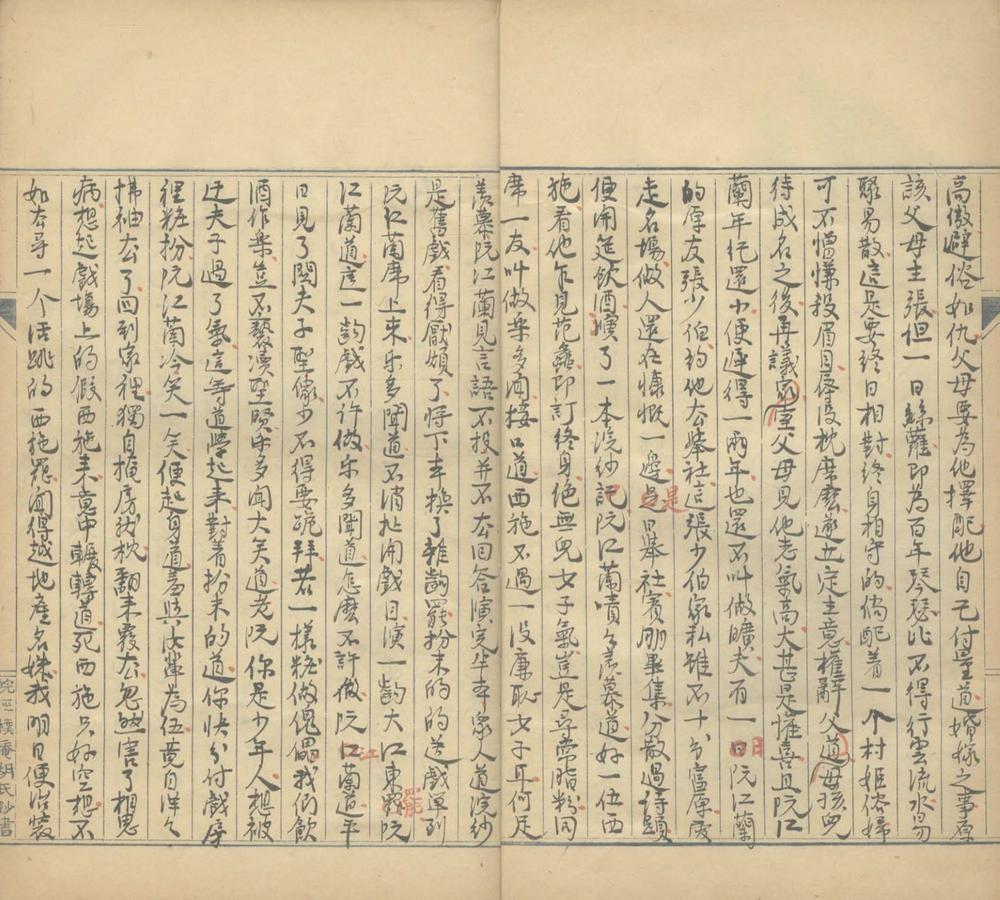 高傲避俗如仇父母要為他擇配他自己忖量道婚嫁之事原
該父母主張但一日絲蘿即為百年琴瑟比不得行雲流水易
聚易散這是要終日相對終身相守的倘配着一个村姬俗婦
可不憎嫌殺眉目辱沒枕席麽遂立定主意權辭父道母孩兒
待成名之後再議家室父母見他志氣高大甚是懽喜且阮江
蘭年纪還小便遲得一兩年也還不叫做曠夫有一日阮江蘭
的厚友張少伯約他去舉社這張少伯家私雖不十分富厚愛
走名塲做人還在慷慨一邊是日舉社賓朋畢集分散過詩題
便開筵飲酒演了一本浣紗記阮江蘭嘖嘖羡慕道好一位西
施看他乍見范蠡即訂終身絕無兒女子氣豈是尋常脂粉同
席一友叫做樂多聞接口道西施不過一没廉恥女子耳何足
羡慕阮江蘭見言語不投并不去回答演完半本衆人道浣紗
是舊戲看得厭煩了将下本換了雜齣罷扮末的的送戲單到
阮江蘭席上來樂多聞道不消扯開戲目演一齣大江東罷阮
江蘭道這一齣戲不許做樂多聞道怎麽不許做阮江蘭道平
日見了関夫子聖像少不得要跪拜若一樣粧做傀儡我們飲
酒作樂豈不褻瀆聖賢樂多聞大笑道老阮你是少年人想被
迂夫子過了氣這等道學起來對着扮末的道你快分付戲房
裡粧扮阮江蘭冷笑一笑便起身道羞與汝輩為伍竟自洋々
拂袖去了回到家裡獨自掩房就枕翻来覆去忽然害了相思
病想起戲塲上的假西施来意中輾轉道死西施只好空想不
如去尋一个活跳的西施罷聞得越地產名姝我明日便治裝
皖江樸庵胡氏鈔書